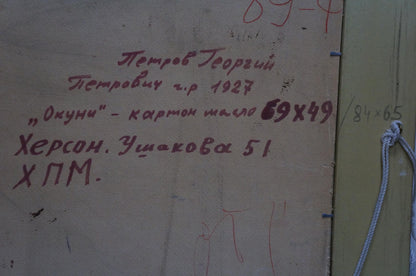 69-4
Петров Георгий
Петрович г.р 1927
„Окуни" - картон масло 69x49 /84x65
Херсон. Ушакова 51
ХПМ.